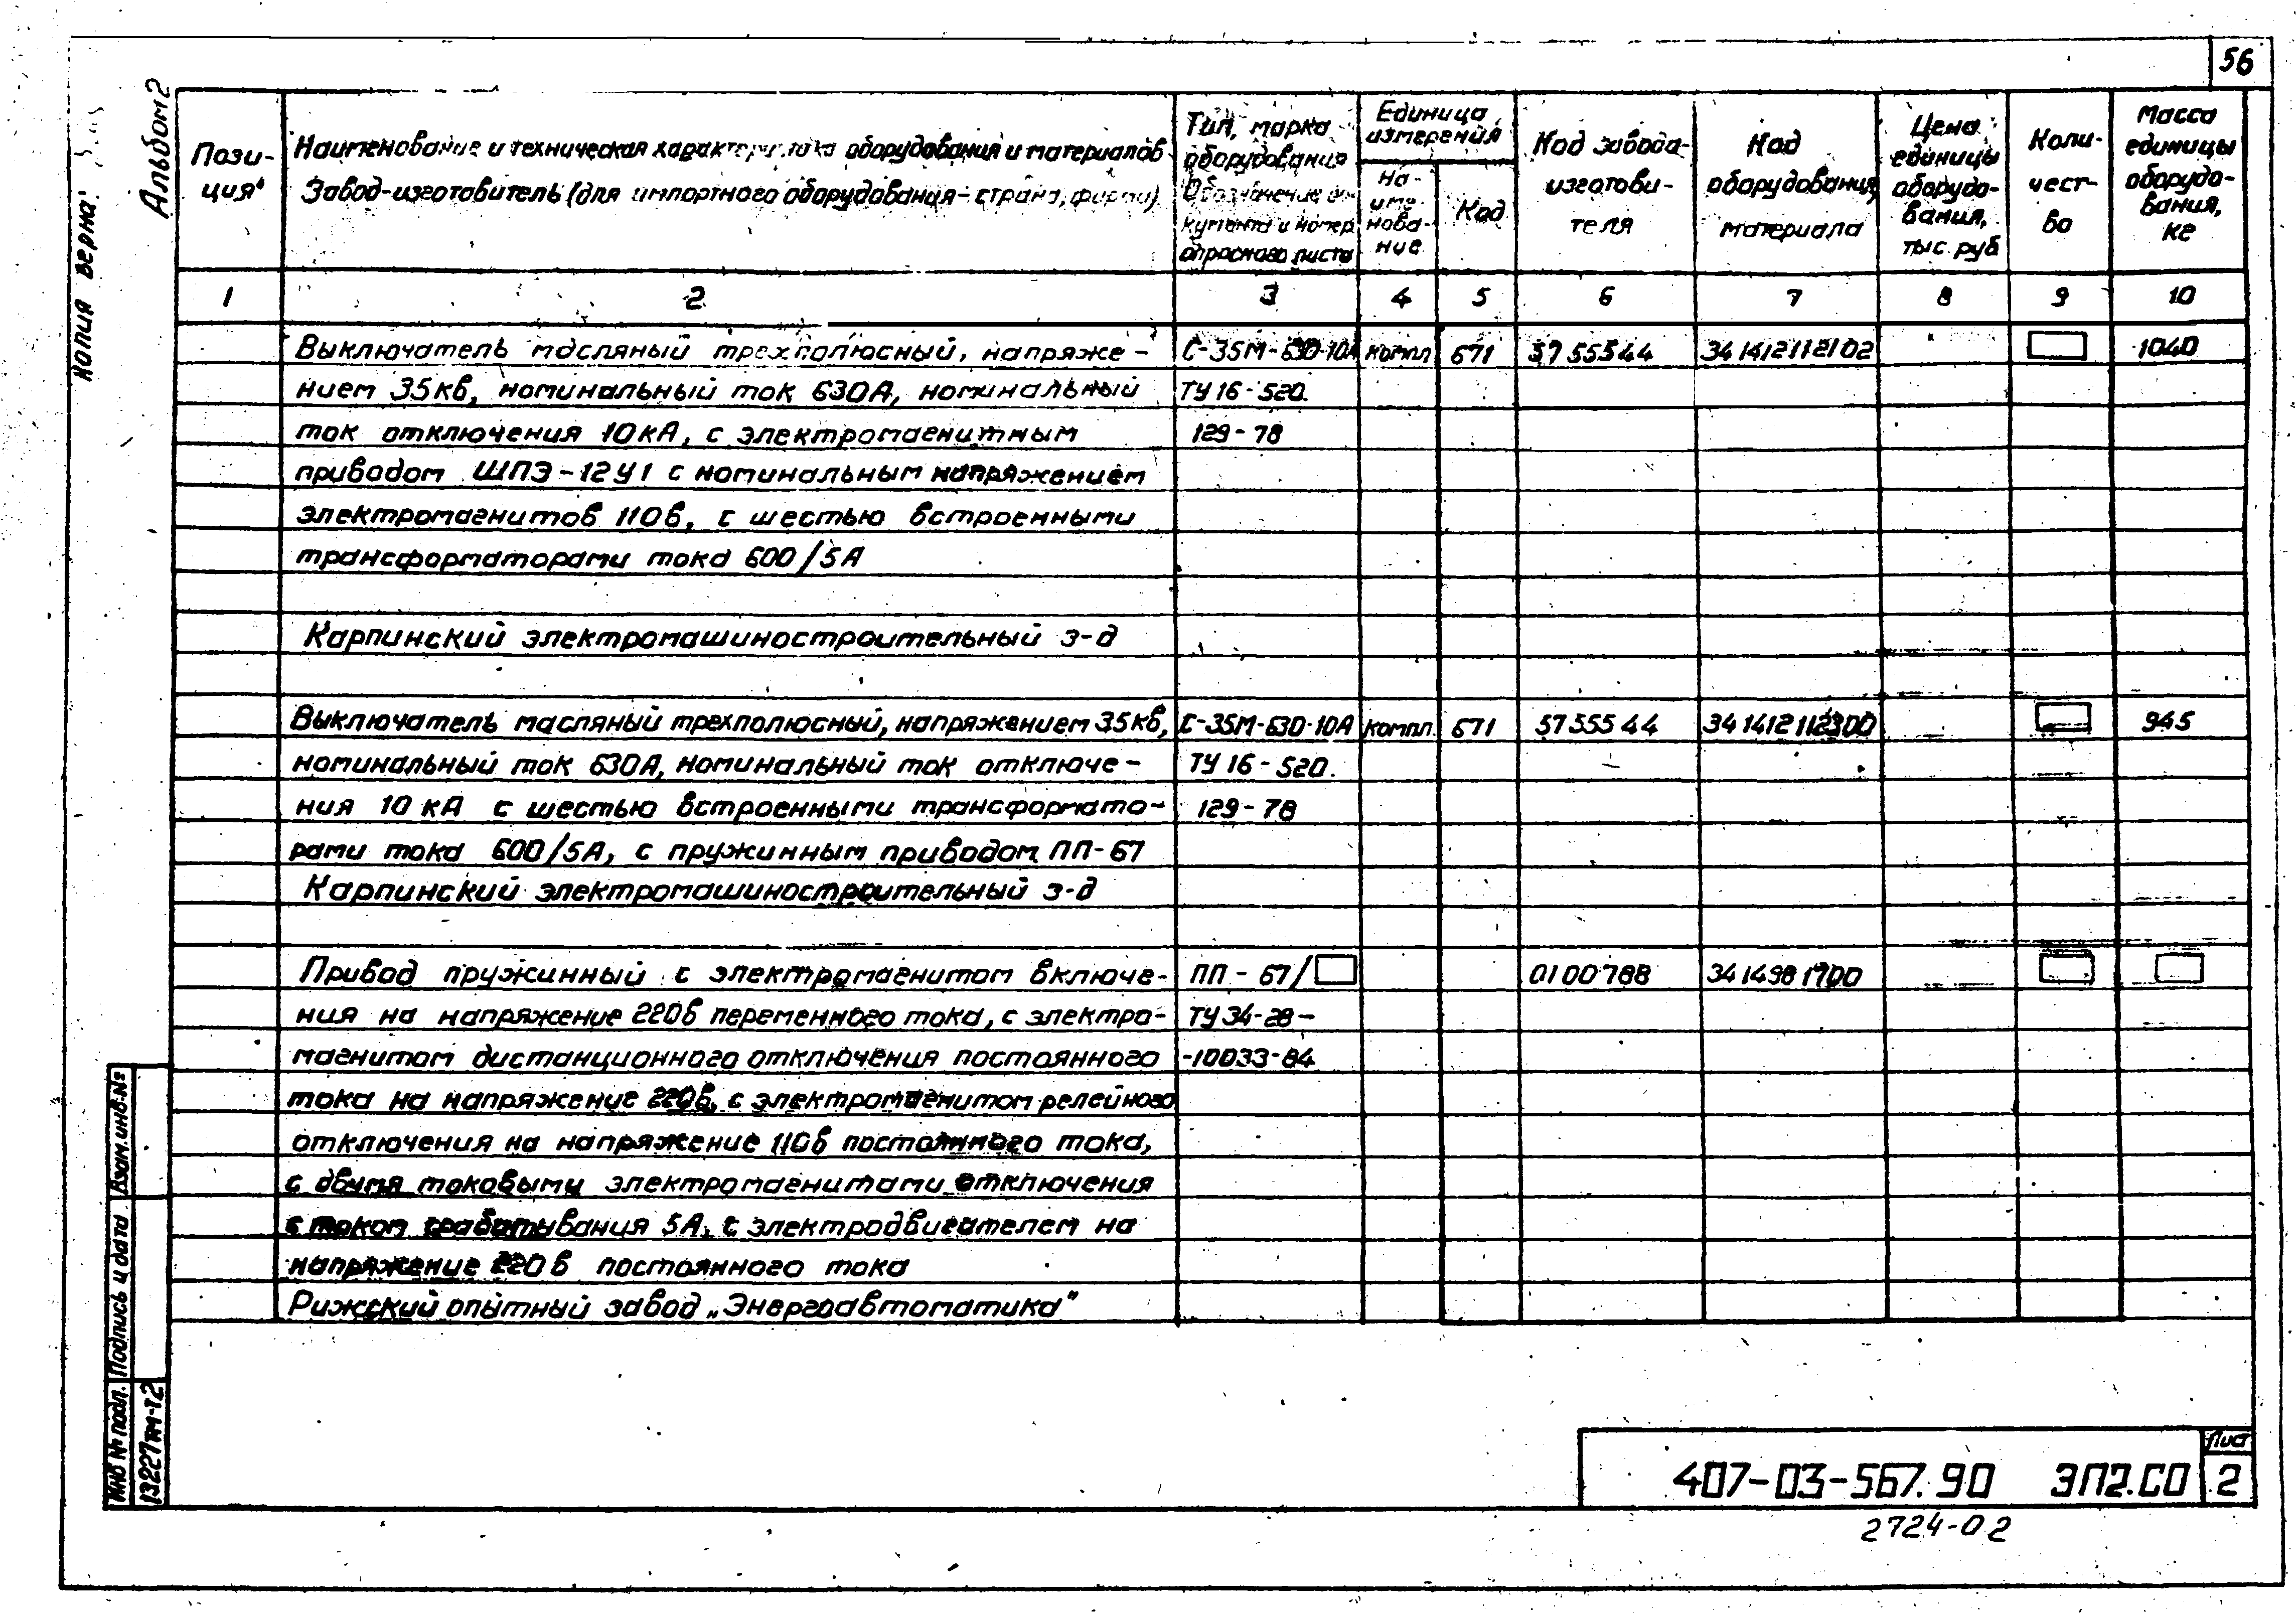 56
Альбом 2
Копия верна:
Пози-
ция
Наименование и техническая характеристика оборудования и материалов
Завод-изготовитель (для импортного оборудования - страна, фирма)
Тип, марка
оборудования
Обозначение до-
кумента и номер
опросного листа
Единица
измерения
На-
име-
нова-
ние
Код
Код завода-
изготови-
теля
Код
оборудования,
материала
Цена
единицы
оборудо-
вания,
тыс. руб
Коли-
чест-
во
Масса
единицы
оборудо-
вания,
кг
1 2 3 4 5 6 7 8 9 10
Выключатель масляный трехполюсный, напряже- С-35М-630-10А компл 671 5755544 341412112102 1040
нием 35кв, номинальный ток 630А, номинальный ТУ 16-520.
ток отключения 10кА, с электромагнитным 129-78
приводом ШПЭ-12У1 с номинальным напряжением
электромагнитов 110в, с шестью встроенными
трансформаторами тока 600/5А
Карпинский электромашиностроительный з-д
Выключатель масляный трехполюсный, напряжением 35кв, С-35М-630-10А компл 671 5755544 341412112300 945
номинальный ток 630А, номинальный ток отключе- ТУ 16-520.
ния 10кА с шестью встроенными трансформато- 129-78
рами тока 600/5А, с пружинным приводом ПП-67
Карпинский электромашиностроительный з-д
Привод пружинный с электромагнитом включе- ПП-67/ 0100788 3414981700
ния на напряжение 220в переменного тока, с электро- ТУ34-28-
магнитом дистанционного отключения постоянного -10033-84
тока на напряжение 220в, с электромагнитом релейного
отключения на напряжение 110в постоянного тока,
с двумя токовыми электромагнитами отключения
с током срабатывания 5А, с электродвигателем на
напряжение 220в постоянного тока
Рижский опытный завод „Энергоавтоматика"
Взам. инв. №
Подпись и дата
Инв № подл.
13227тм-т2
407-03-567.90 ЭП2.СО
Лист
2
2724-02